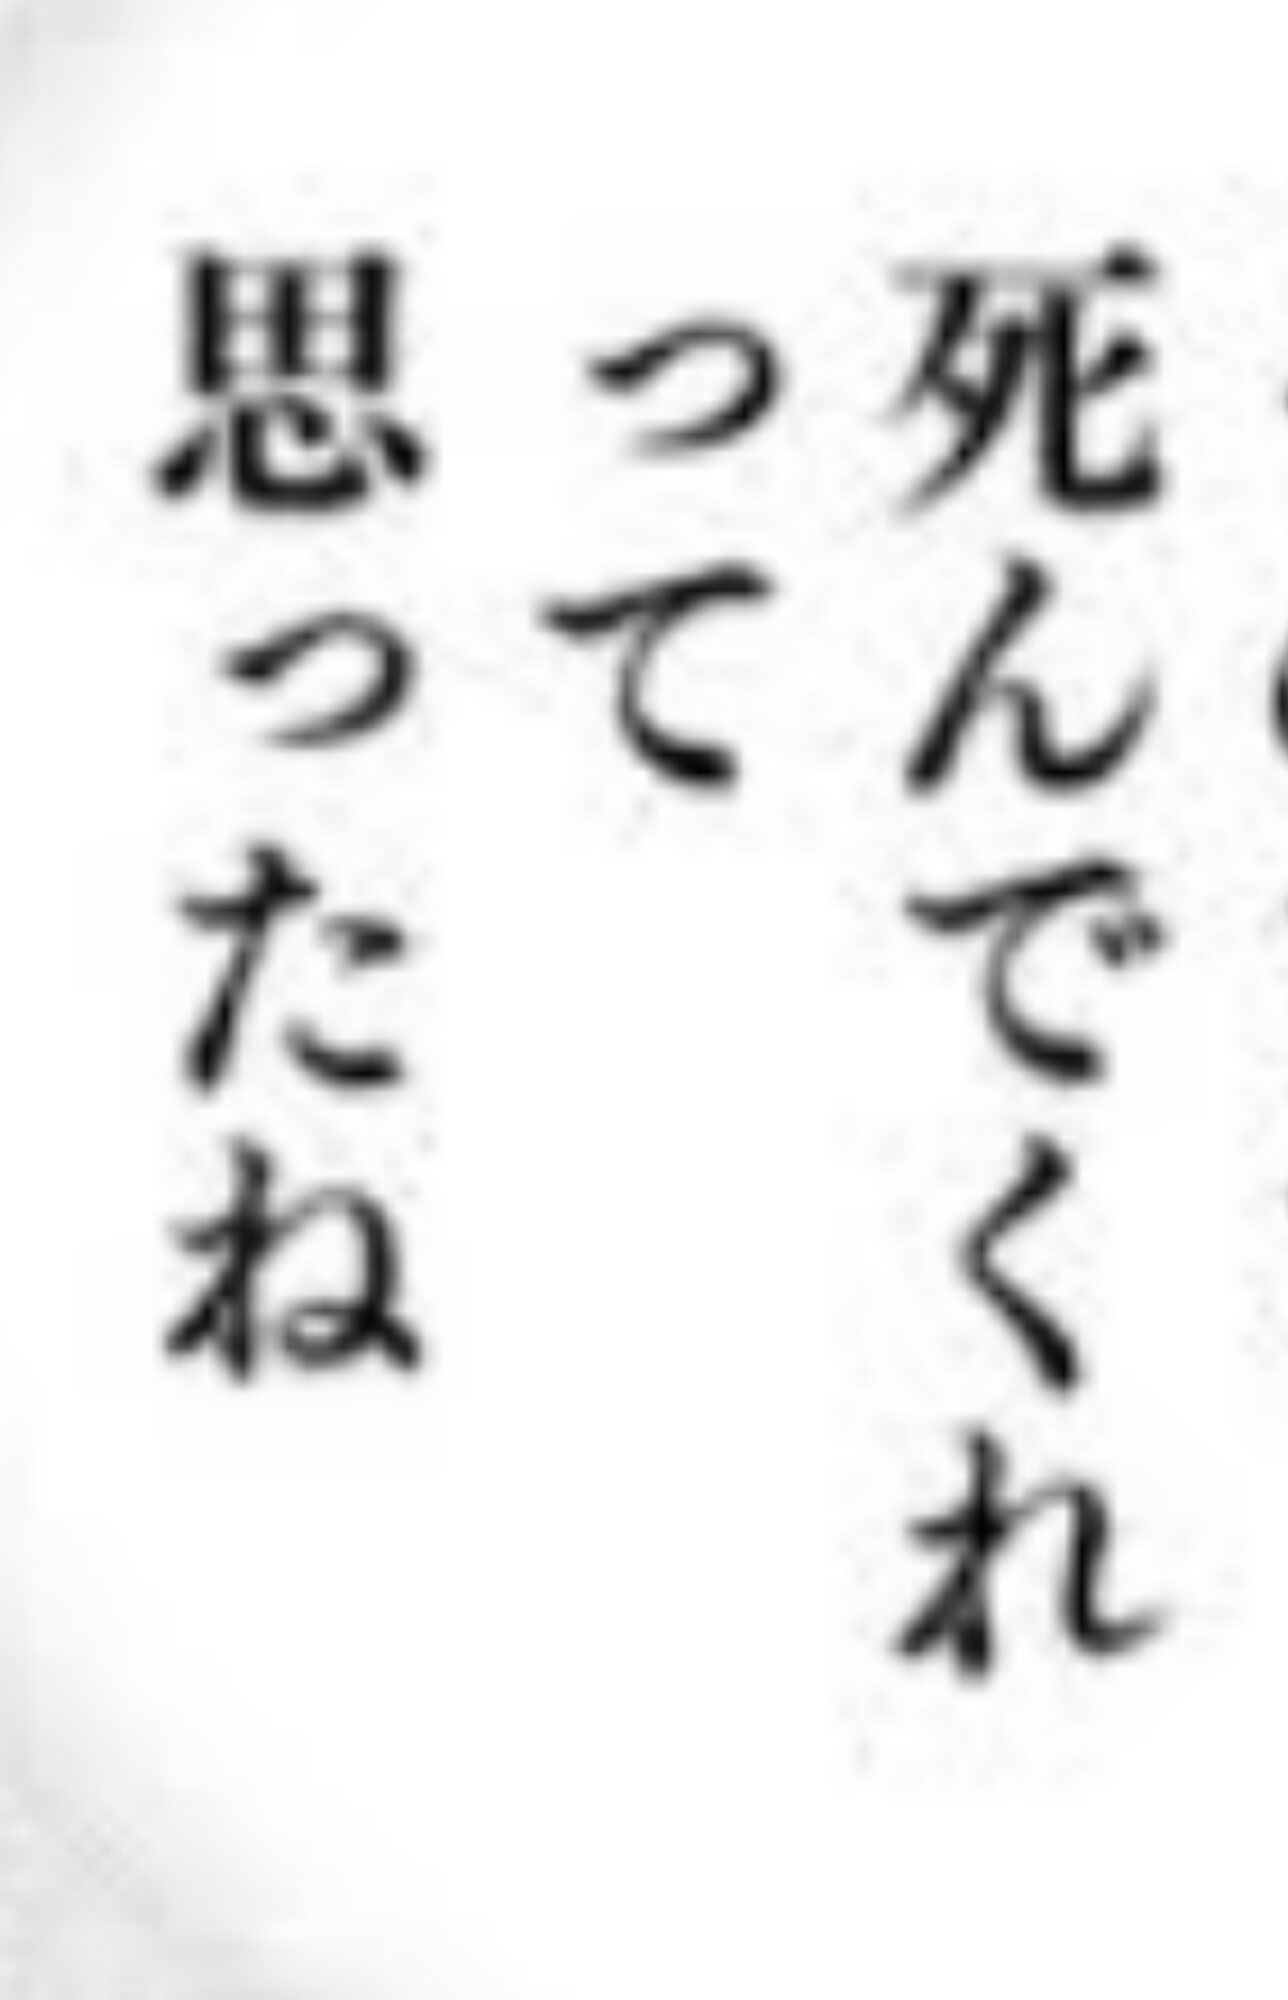 死んでくれ
って
思ったね